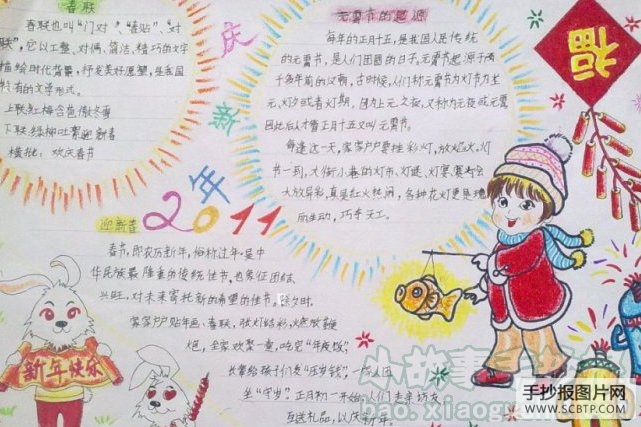 春联
春联也叫“门对”、“春贴”、“对
联”,它以工整、对偶、简洁、精巧的文字
描绘时代背景,抒发美好愿望,是我国
特有的文学形式。
上联:红梅含苞傲冬雪
下联:绿柳吐絮迎新春
横批:欢庆春节
庆新年2011
元宵节的起源
每年的正月十五,是我国人民传统
的元宵节,是人们团圆的日子,元宵节起源于两
千多年前的汉朝,古时候,人们称元宵节为灯节为主
元、灯夕或者灯期,因为上元之夜,又称为元夜或元宵
因此后人才管正月十五又叫元宵节。
每逢这一天,家家户户要挂彩灯,放焰火,灯
节一到,大街小巷的灯市、灯谜、灯
大放异彩,真是红火热闹,各种花灯更是
而生动,巧夺天工。
福
迎新春
春节,即农历新年,俗称过年,是中
华民族最隆重的传统佳节,也象征团结、
兴旺,对未来寄托新的希望的佳节。
家家户户贴年画、春联,张灯结彩,燃放鞭
炮,全家欢聚一堂,吃完“年夜饭”,
长辈给孩子们发“压岁钱”,一家人团
坐“守岁”。正月初一开始,人们走亲访友
互送礼品,以庆新年。
新年快乐
小故事
bao.xiaogu
手抄报图片网
WWW.SCBTP.COM